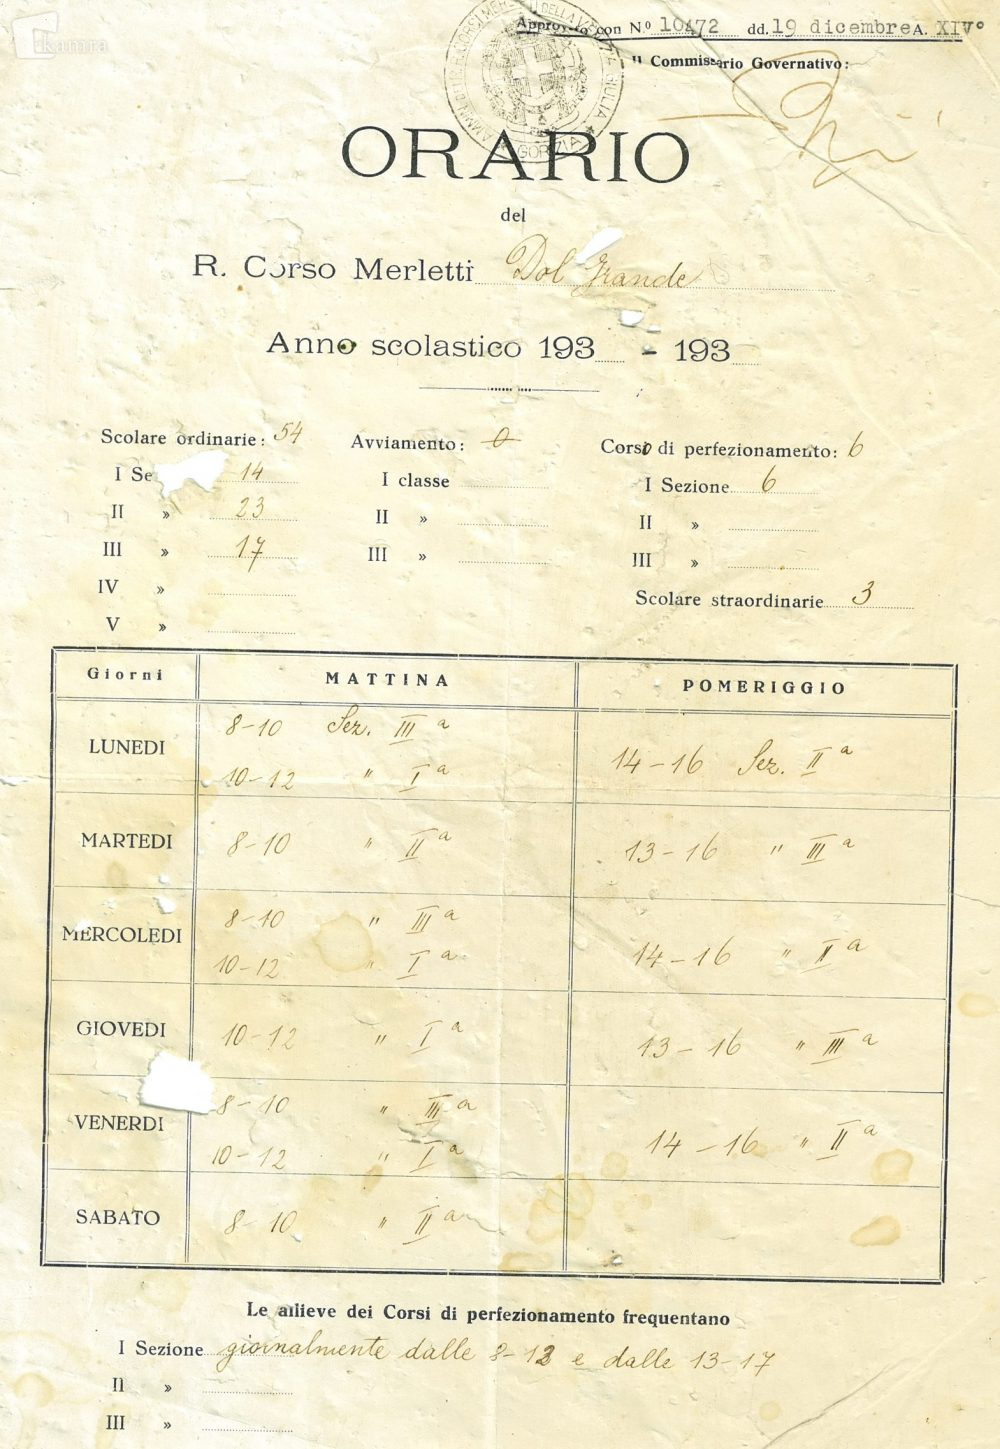 kamra
Approvato con N.º 10472 dd. 19 dicembre A. XIVº
Il Commissario Governativo:
GORIZIA
ORARIO
del
R. Corso Merletti Dol Grande
Anno scolastico 193 - 193
Scolare ordinarie: 54 Avviamento: 0 Corsi di perfezionamento: 6
I Se 14 I classe I Sezione 6
II » 23 II » II »
III » 17 III » III »
IV » Scolare straordinarie 3
V »
Giorni MATTINA POMERIGGIO
LUNEDI 8-10 Sez. IIIª 14-16 Sez. IIª
10-12 " Iª
MARTEDI 8-10 " IIª 13-16 " IIIª
MERCOLEDI 8-10 " IIIª 14-16 " IIª
10-12 " Iª
GIOVEDI 10-12 " Iª 13-16 " IIIª
VENERDI 8-10 " IIIª 14-16 " IIª
10-12 " Iª
SABATO 8-10 " IIª
Le allieve dei Corsi di perfezionamento frequentano
I Sezione giornalmente dalle 8-12 e dalle 13-17
II »
III »